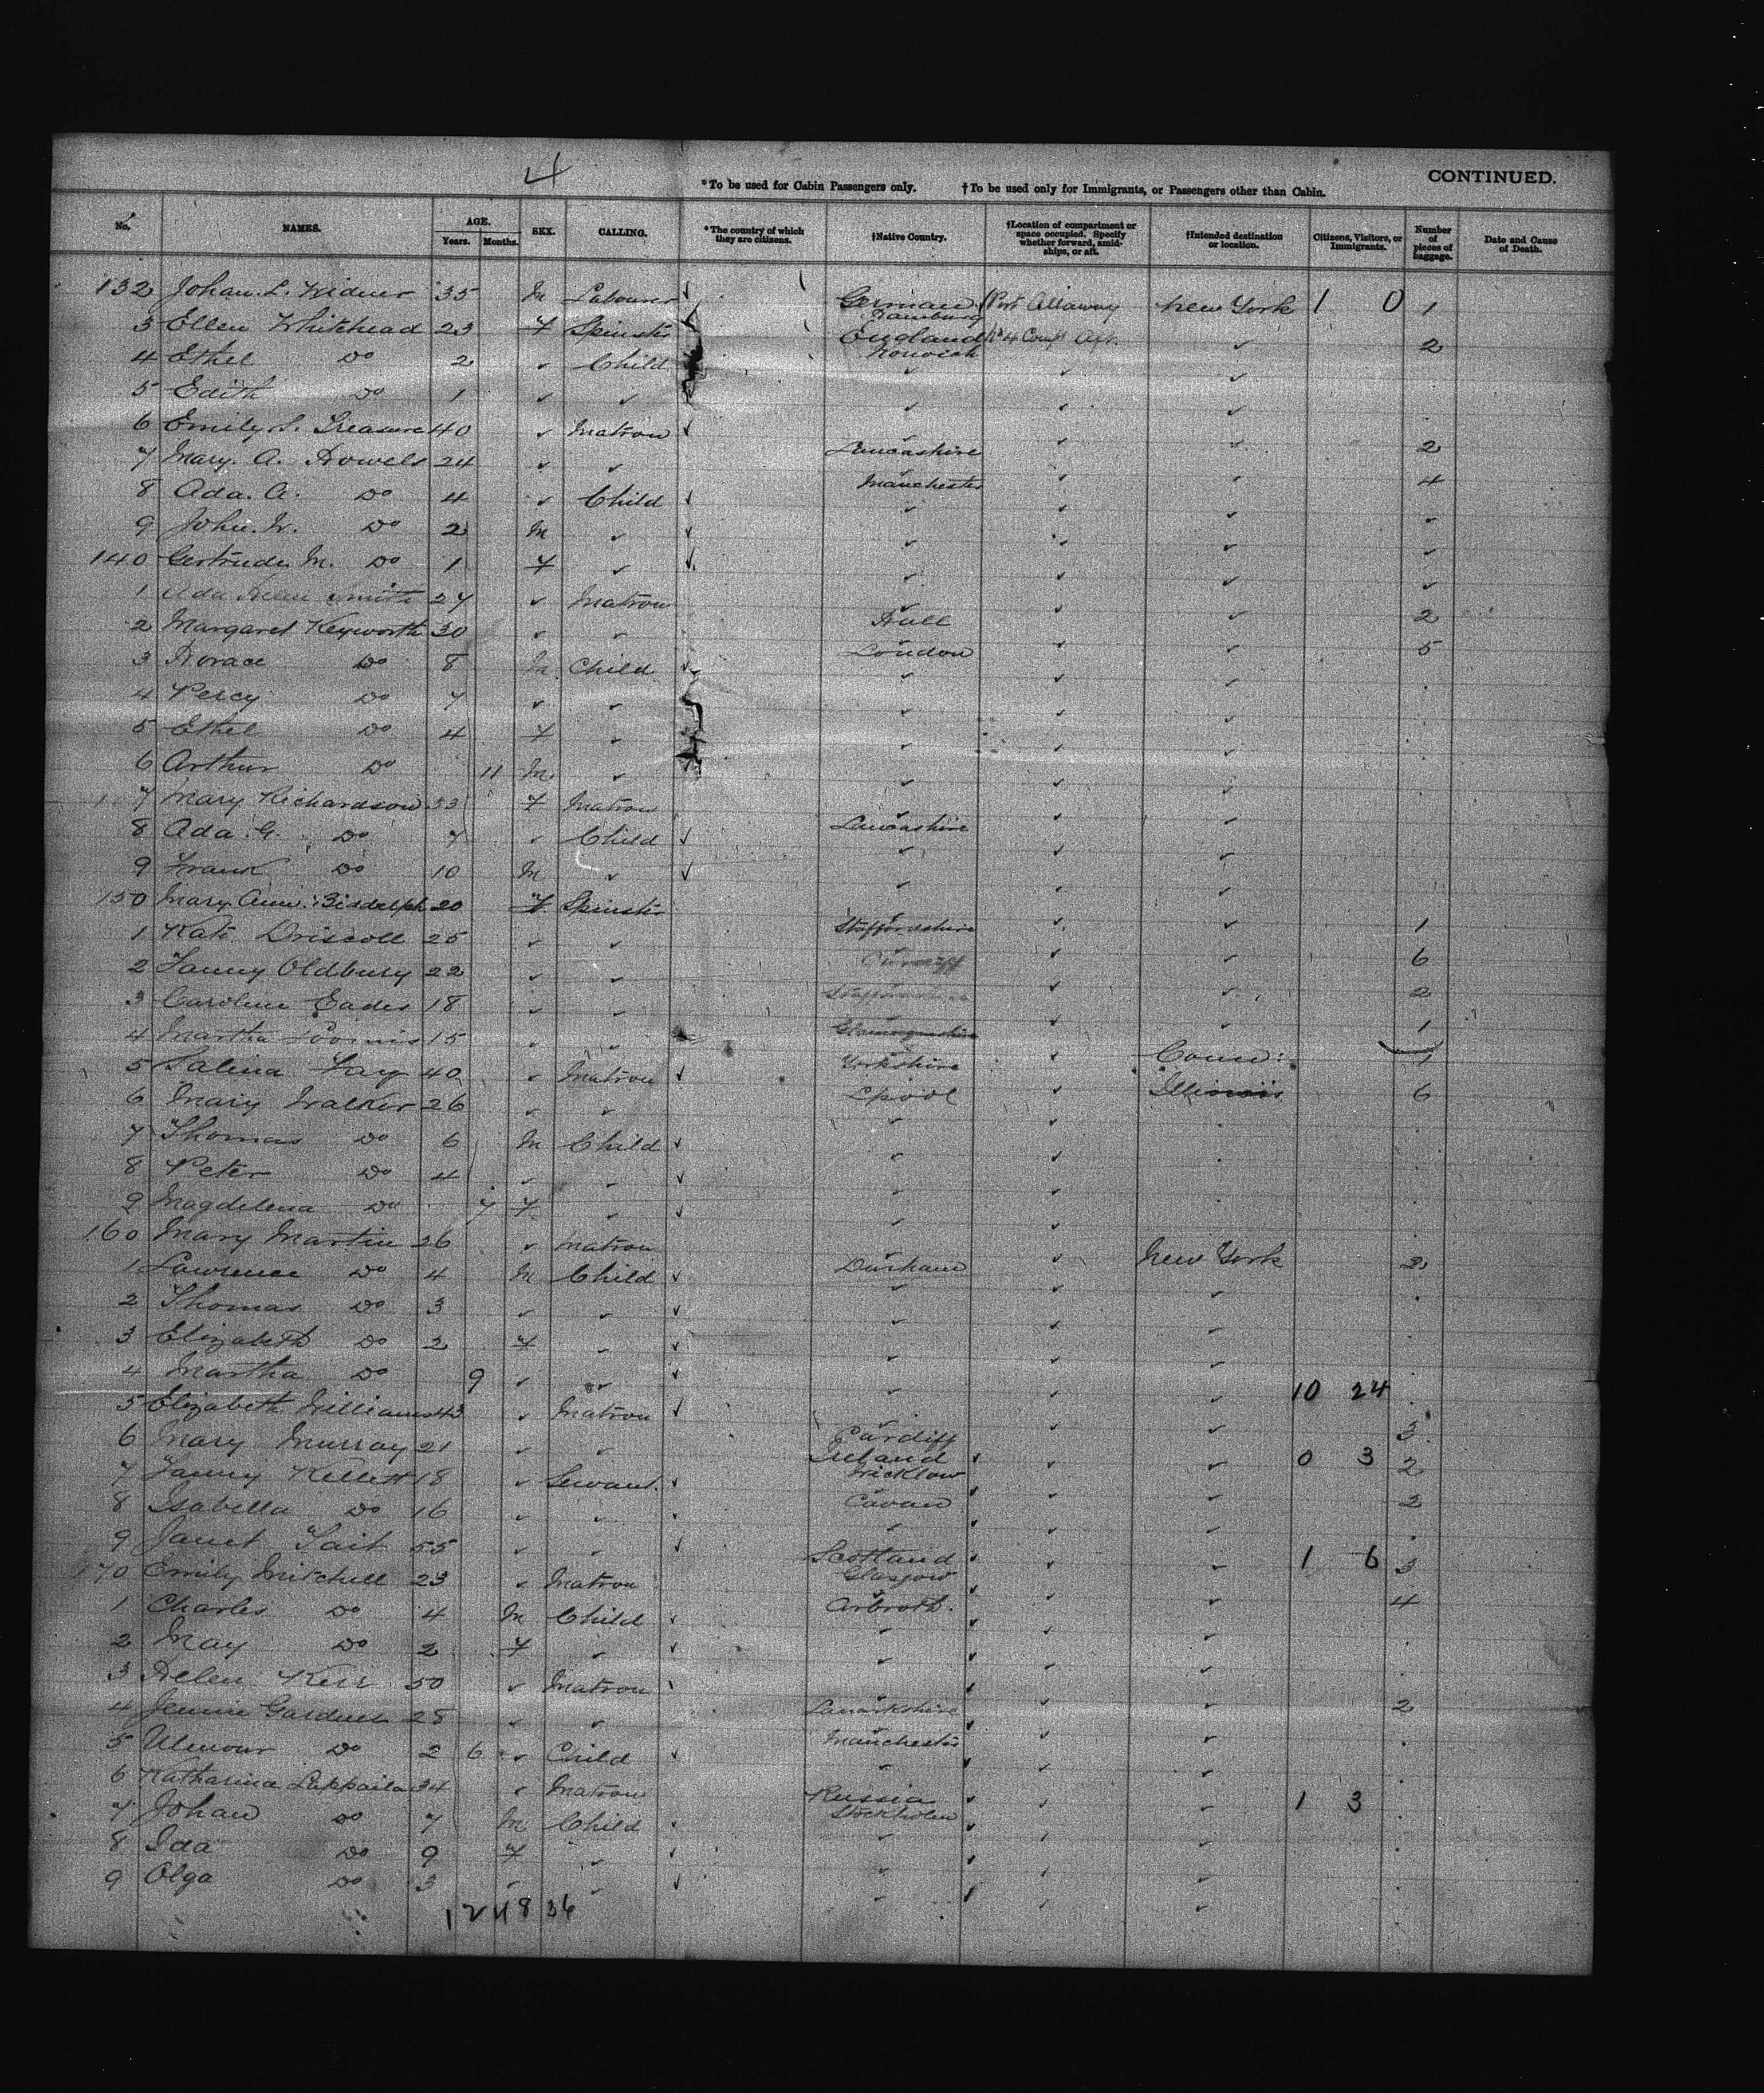 4
*To be used for Cabin Passengers only. †To be used only for Immigrants, or Passengers other than Cabin. CONTINUED.
No. NAMES. AGE. Years. Months. SEX. CALLING. *The country of which they are citizens. †Native Country. †Location of compartment or space occupied. Specify whether forward, amidships, or aft. †Intended destination or location. Citizens, Visitors, or Immigrants. Number of pieces of baggage. Date and Cause of Death.
132 Johan. L. Widner 35 M Labourer German Hamburg New York 1 0 1
3 Ellen Whitehead 23 F Spinster England Norwich No 4 Compt Aft. ✓ 2
4 Ethel Do 2 ✓ Child ✓ ✓ ✓
5 Edith Do 1 ✓ ✓ ✓ ✓ ✓
6 Emily S. Treasure 40 ✓ Matron Lancashire ✓ ✓ 2
7 Mary. A. Howels 24 ✓ ✓ Manchester ✓ ✓ 4
8 Ada. A. Do 4 ✓ Child ✓ ✓ ✓ ✓ ✓
9 John. W. Do 2 M ✓ ✓ ✓ ✓ ✓ ✓
140 Gertrude M. Do 1 F ✓ ✓ ✓ ✓ ✓ ✓
1 Ada Smith 27 ✓ Matron Hull ✓ ✓ 2
2 Margaret Keyworth 30 ✓ ✓ London ✓ ✓ 5
3 Horace Do 8 M Child ✓ ✓ ✓ ✓
4 Percy Do 7 ✓ ✓ ✓ ✓ ✓
5 Ethel Do 4 F ✓ ✓ ✓ ✓
6 Arthur Do 11 M ✓ ✓ ✓ ✓
7 Mary Richardson 33 F Matron Lancashire ✓ ✓
8 Ada. G. Do 7 ✓ Child ✓ ✓ ✓ ✓
9 Frank Do 10 M ✓ ✓ ✓ ✓ ✓
150 Mary Ann Biddelph 20 F Spinster Staffordshire ✓ ✓ 1
1 Kate Driscoll 25 ✓ ✓ Cardiff ✓ ✓ 6
2 Fanny Oldbury 22 ✓ ✓ Staffordshire ✓ ✓ 2
3 Caroline Eades 18 ✓ ✓ ✓ ✓ 1
4 Martha 15 ✓ ✓ Yorkshire ✓ Conn: 1
5 Salina Fay 40 ✓ Matron ✓ Lpool ✓ Illinois 6
6 Mary Walker 26 ✓ ✓ ✓ ✓
7 Thomas Do 6 M Child ✓ ✓ ✓
8 Peter Do 4 ✓ ✓ ✓ ✓ ✓
9 Magdelena Do 7 F ✓ ✓ ✓ ✓
160 Mary Martin 26 ✓ Matron Durham ✓ New York 2
1 Lawrence Do 4 M Child ✓ ✓ ✓ ✓
2 Thomas Do 3 ✓ ✓ ✓ ✓ ✓ ✓
3 Elizabeth Do 2 F ✓ ✓ ✓ ✓ ✓
4 Martha Do 9 ✓ ✓ ✓ ✓ ✓ ✓ 10 24
5 Elizabeth Williams 43 ✓ Matron ✓ Cardiff ✓ ✓ 3
6 Mary Murray 21 ✓ ✓ Ireland Wicklow ✓ ✓ 0 3 2
7 Fanny Kellett 18 ✓ Servant. ✓ Cavan ✓ ✓ 2
8 Isabella Do 16 ✓ ✓ ✓ ✓ ✓
9 Janet Tait 55 ✓ ✓ ✓ Scotland Glasgow ✓ ✓ 1 6 3
170 Emily Mitchell 23 ✓ Matron Arbroth. ✓ ✓ 4
1 Charles Do 4 M Child ✓ ✓ ✓ ✓
2 May Do 2 F ✓ ✓ ✓ ✓ ✓
3 Helen Kerr 50 ✓ Matron Lanarkshire ✓ ✓ 2
4 Jennie Gardner 28 ✓ ✓ Manchester ✓ ✓
5 Do 2 6 ✓ Child ✓ ✓ ✓ ✓
6 Katharina Lappaila 34 ✓ Matron Russia Stockholm ✓ ✓ 1 3
7 Johan Do 7 M Child ✓ ✓ ✓ ✓
8 Ida Do 9 F ✓ ✓ ✓ ✓ ✓
9 Olga Do 3 ✓ ✓ ✓ ✓ ✓ ✓